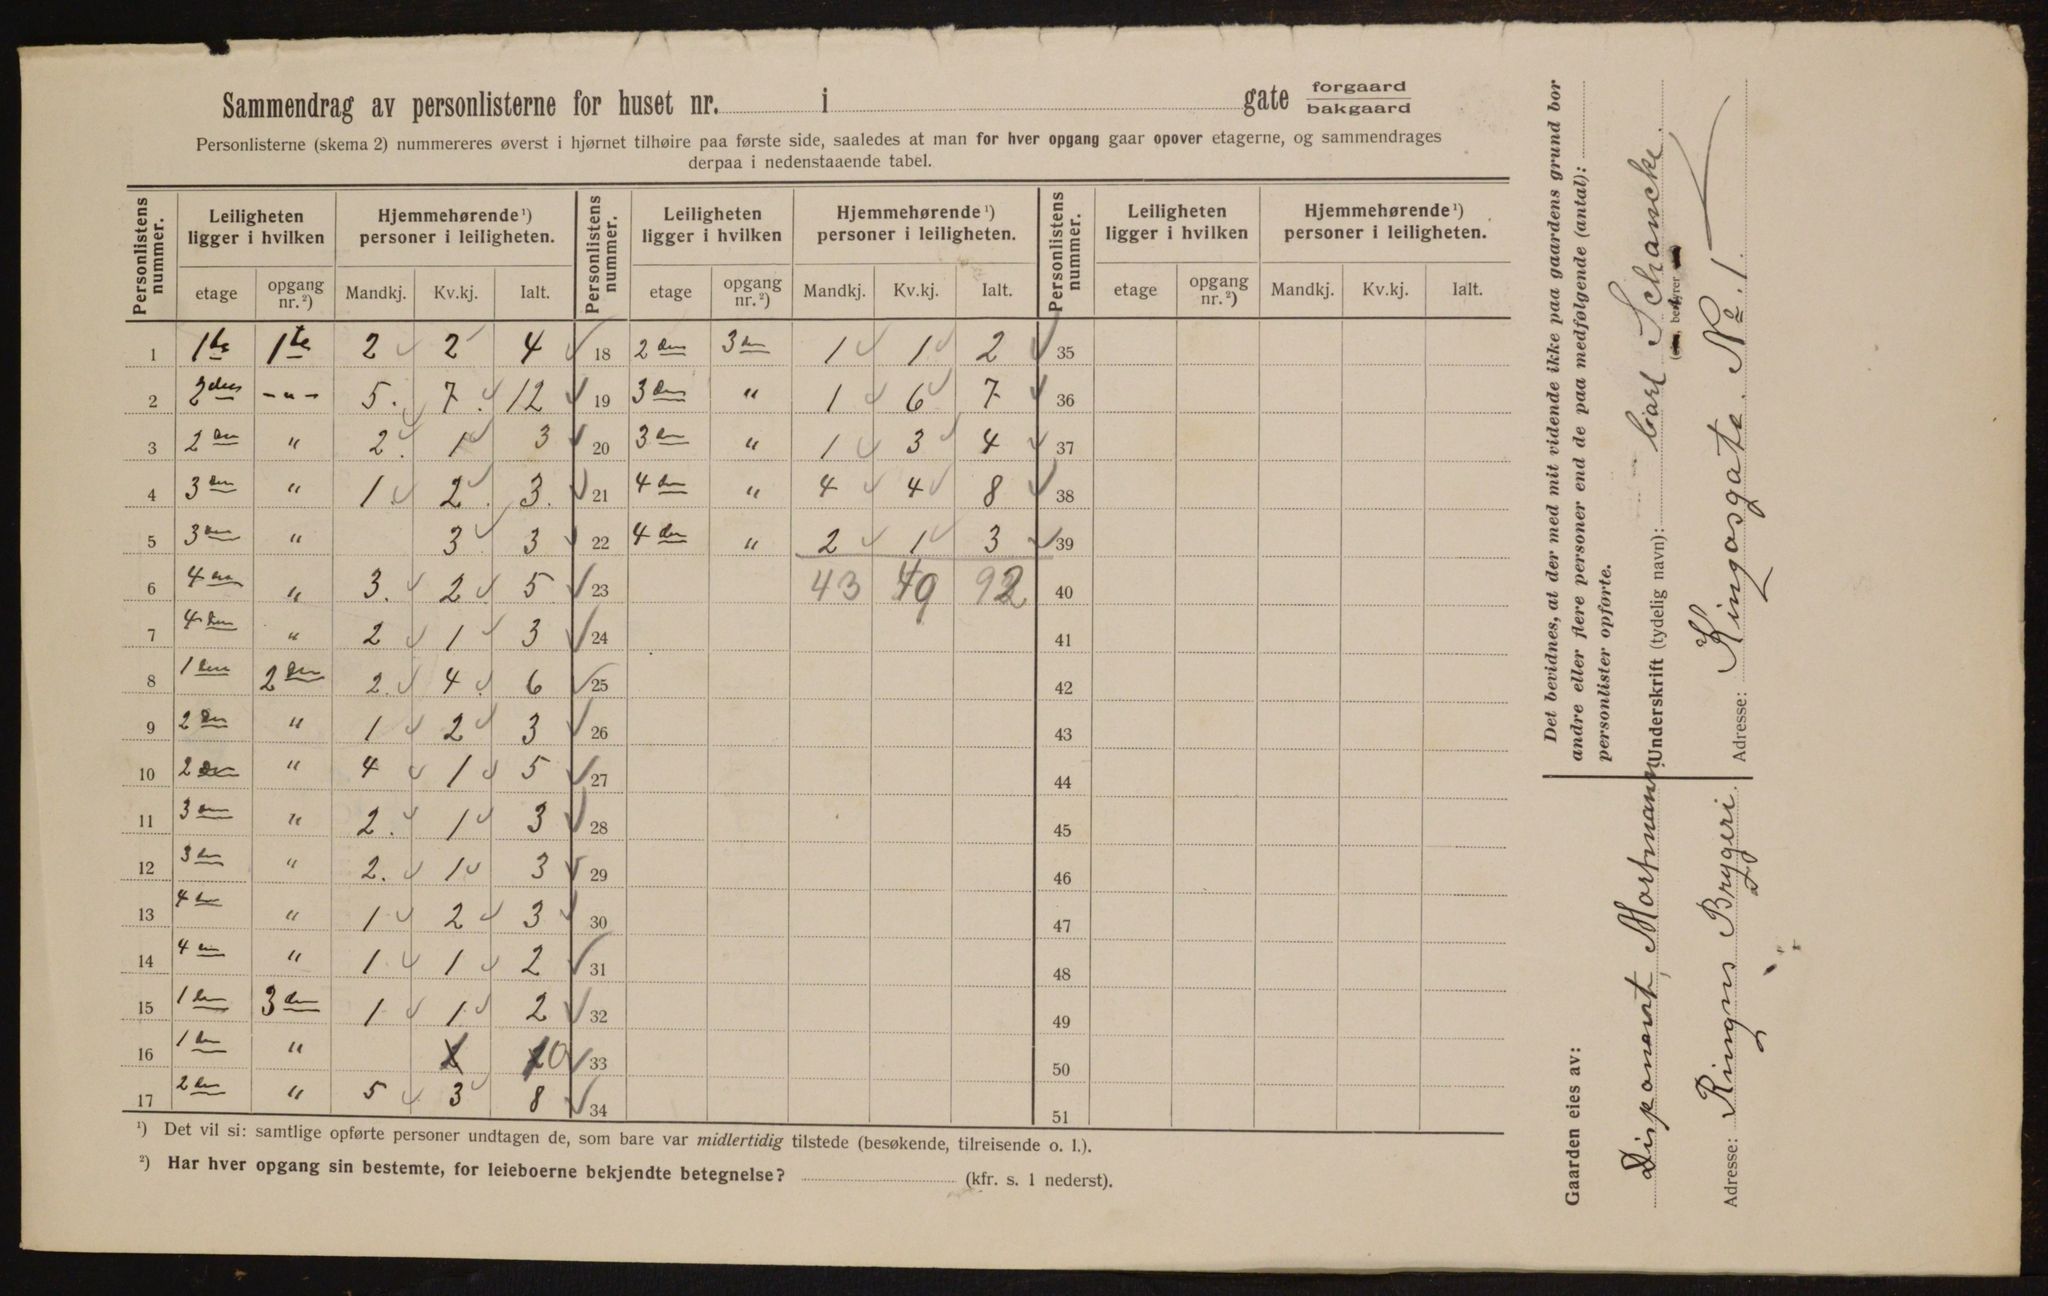 Sammendrag av personlisterne for huset nr. i gate forgaard bakgaard
Personlisterne (skema 2) nummereres øverst i hjørnet tilhøire paa første side, saaledes at man for hver opgang gaar opover etagerne, og sammendrages
derpaa i nedenstaaende tabel.
Personlistens nummer. Leiligheten ligger i hvilken Hjemmehørende ¹) personer i leiligheten. Personlistens nummer. Leiligheten ligger i hvilken Hjemmehørende ¹) personer i leiligheten. Personlistens nummer. Leiligheten ligger i hvilken Hjemmehørende ¹) personer i leiligheten.
etage opgang nr. ²) Mandkj. Kv.kj. Ialt. etage opgang nr. ²) Mandkj. Kv.kj. Ialt. etage opgang nr. ²) Mandkj. Kv.kj. Ialt.
1 1te 1te 2 2 4 18 2den 3den 1 1 2 35
2 2den -"- 5. 7. 12 19 3den " 1 6 7 36
3 2den " 2. 1 3 20 3den " 1 3 4 37
4 3den " 1. 2. 3. 21 4den " 4 4 8 38
5 3den " 3 3 22 4den " 2 1 3 39
6 4den " 3. 2. 5. 23 43 49 92 40
7 4den " 2 1 3 24 41
8 1den 2den 2. 4. 6 25 42
9 2den " 1 2 3 26 43
10 2den " 4 1 5 27 44
11 3den " 2. 1 3 28 45
12 3den " 2. 1 3 29 46
13 4den " 1 2 3 30 47
14 4den " 1 1 2 31 48
15 1den 3den 1 1 2 32 49
16 1den " 0 33 50
17 2den " 5 3 8 34 51
¹) Det vil si: samtlige opførte personer undtagen de, som bare var midlertidig tilstede (besøkende, tilreisende o. l.).
²) Har hver opgang sin bestemte, for leieboerne bekjendte betegnelse? (kfr. s. 1 nederst).
Det bevidnes, at der med mit vidende ikke paa gaardens grund bor
andre eller flere personer end de paa medfølgende (antal):
personlister opførte.
Underskrift (tydelig navn): Carl Schancke.
(eier, bestyrer
Adresse: Kingosgate No 1.
Gaarden eies av:
Disponent, Morfmann
Adresse: Ringns Bryggeri.